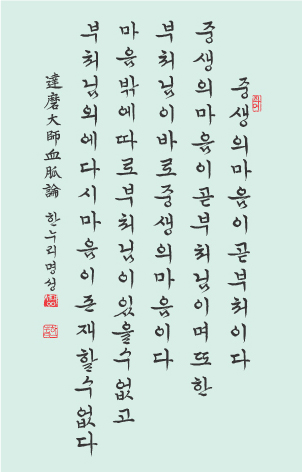 중생의마음이곧부처이다
중생의마음이곧부처님이며또한
부처님이바로중생의마음이다
마음밖에따로부처님이있을수없고
부처님외에다시마음이존재할수없다
達磨大師血脈論 한누리명성